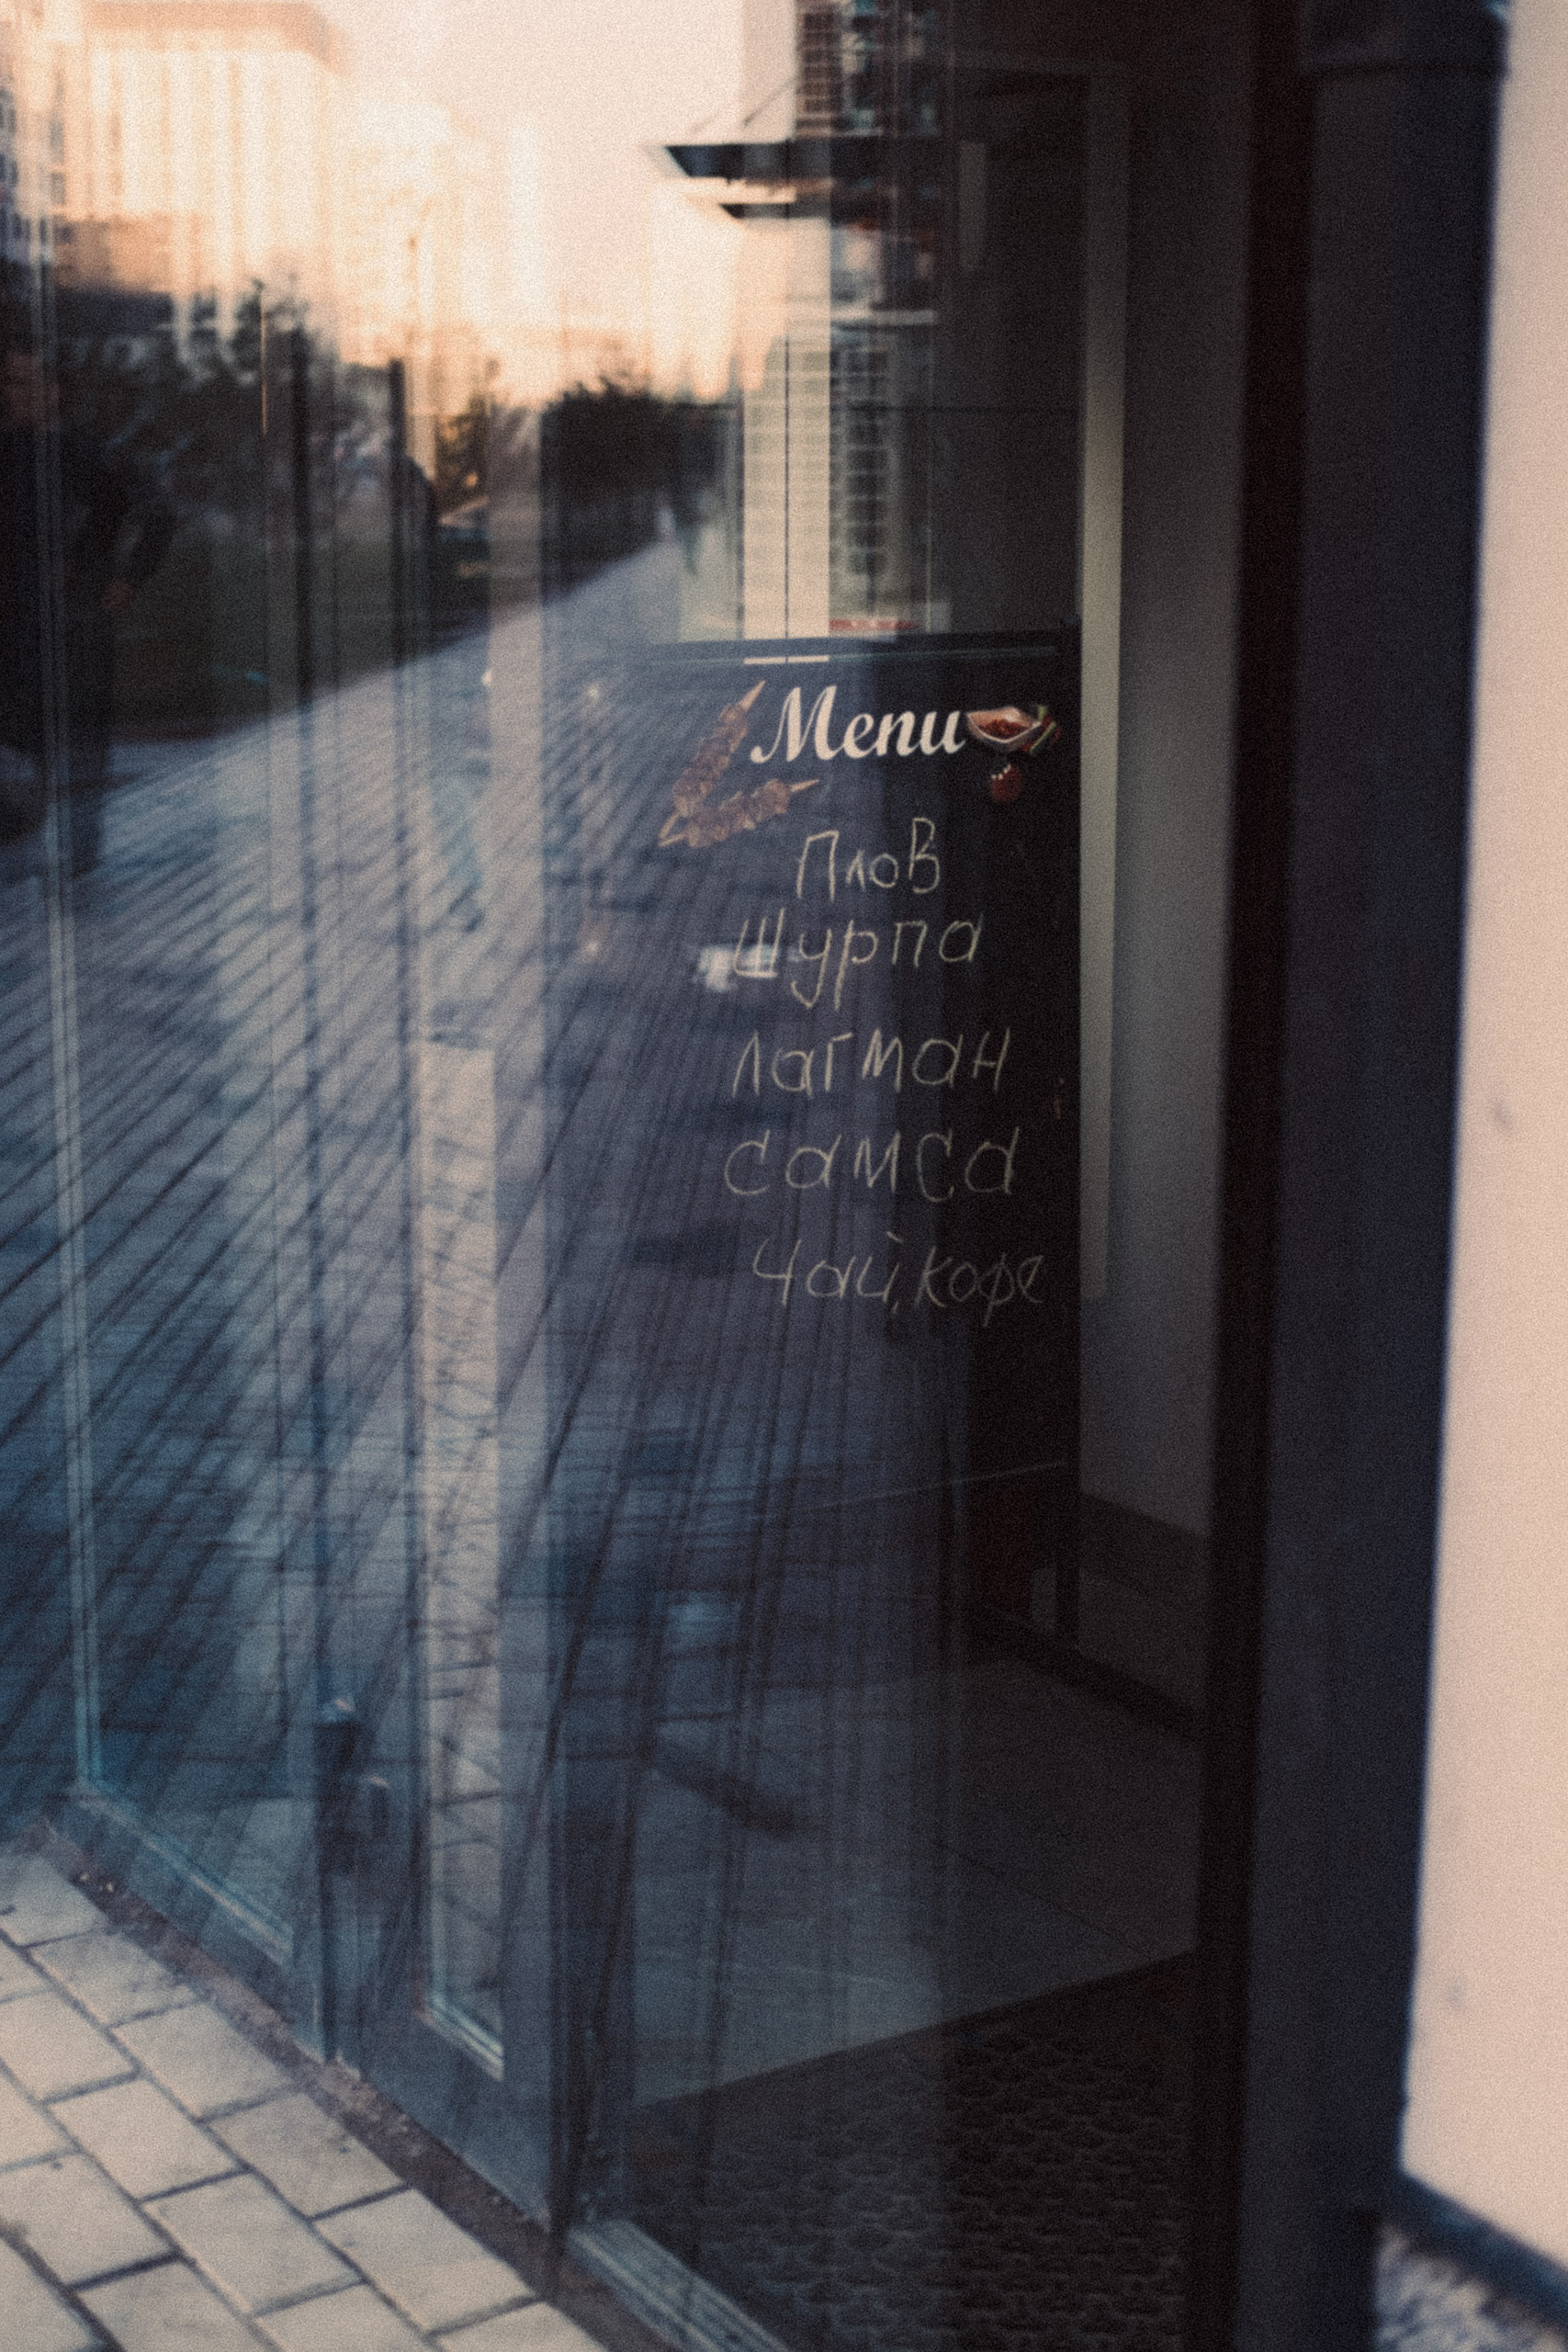 Menu
Плов
Шурпа
лагман
самса
Чай, кофе